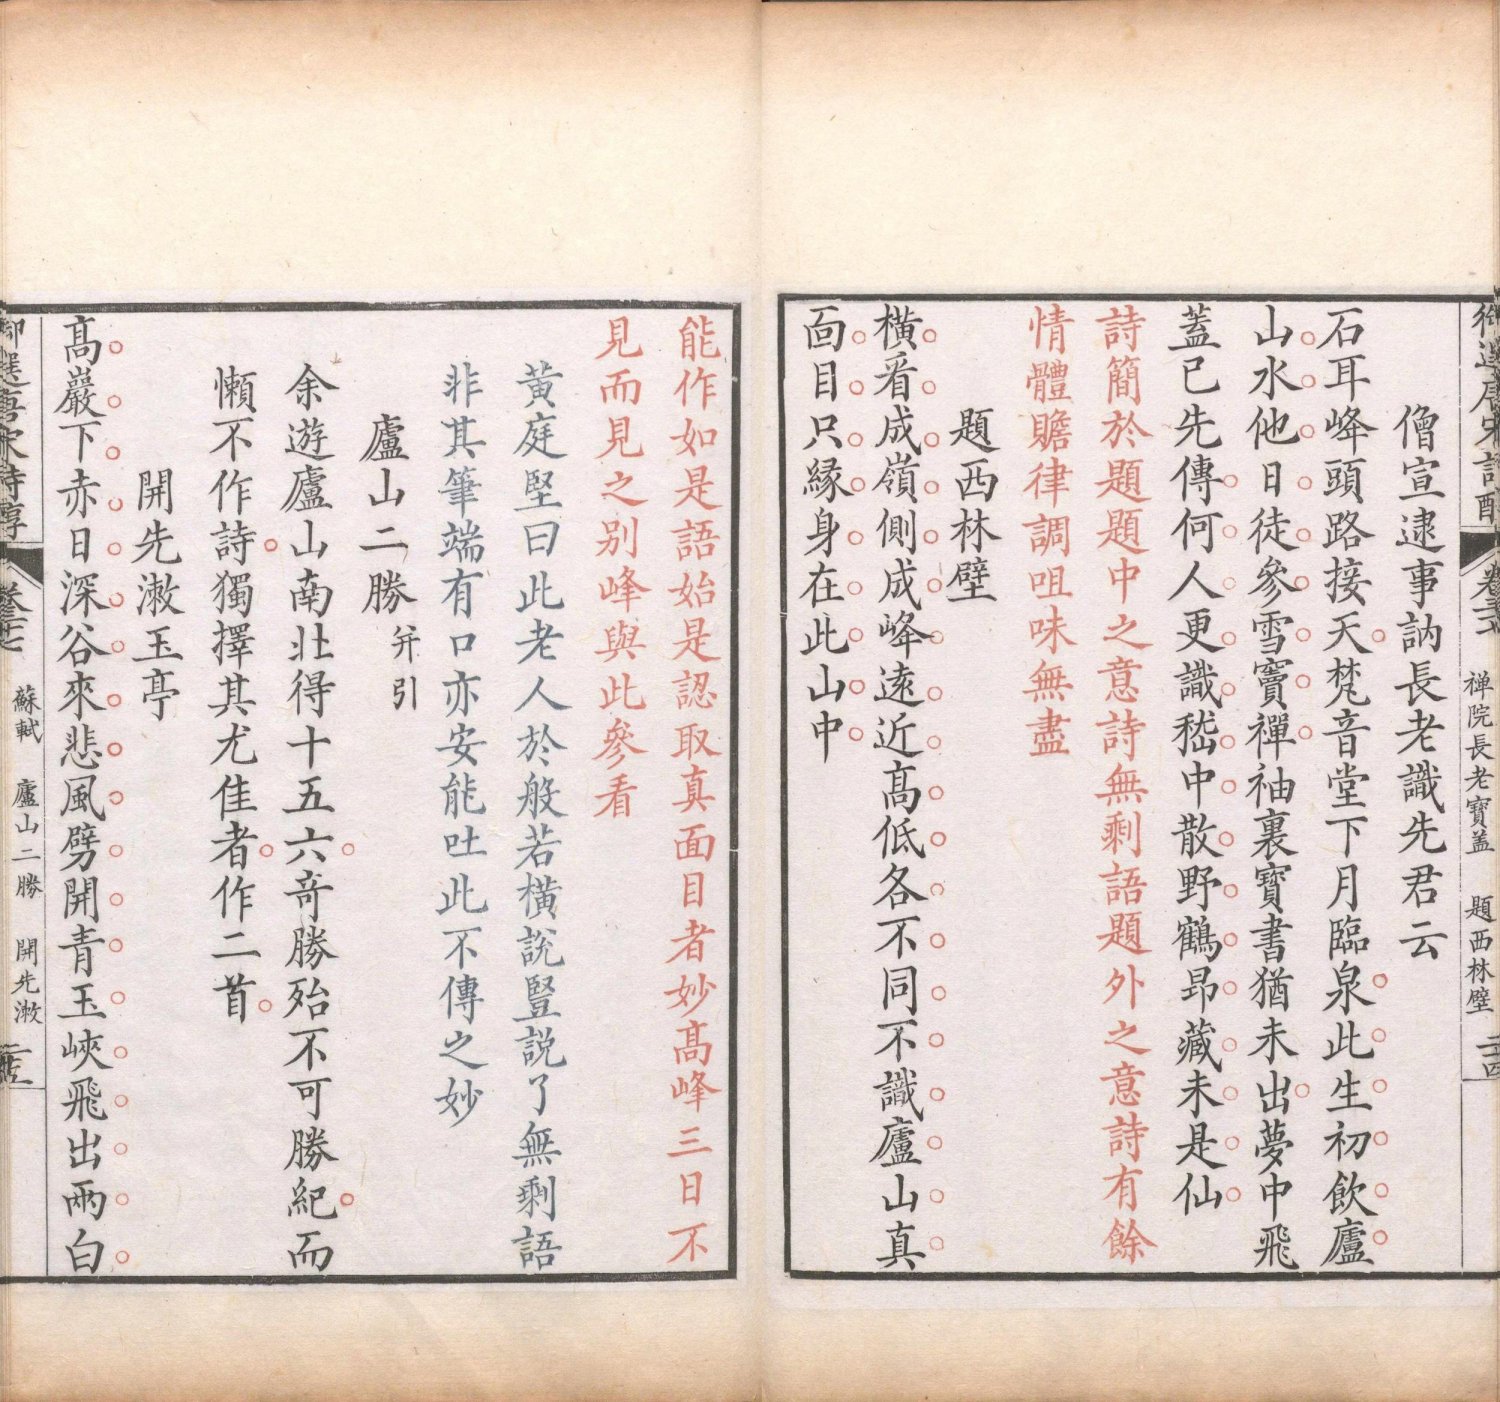 御選唐宋詩醇
卷三十七
禪院長老寶蓋　題西林壁
二十四
僧宣逮事訥長老識先君云
石耳峰頭路接天梵音堂下月臨泉此生初飲廬
山水他日徒參雪竇禪袖裏寶書猶未出夢中飛
蓋已先傳何人更識嵇中散野鶴昻藏未是仙
詩簡於題題中之意詩無剩語題外之意詩有餘
情體贍律調咀味無盡
題西林壁
橫看成嶺側成峰遠近高低各不同不識廬山真
面目只緣身在此山中
能作如是語始是認取真面目者妙高峰三日不
見而見之别峰與此參看
黄庭堅曰此老人於般若橫說豎說了無剩語
非其筆端有口亦安能吐此不傳之妙
廬山二勝并引
余遊廬山南北得十五六奇勝殆不可勝紀而
懶不作詩獨擇其尤佳者作二首
開先漱玉亭
高巖下赤日深谷來悲風劈開青玉峽飛出兩白
御選唐宋詩醇
卷三十七
蘇軾　廬山二勝　開先漱
二十五